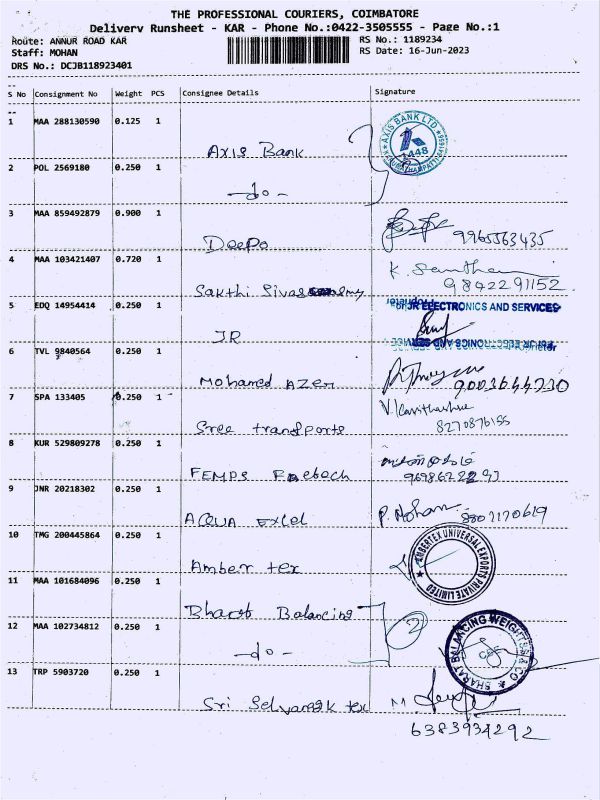 THE PROFESSIONAL COURIERS, COIMBATORE
Delivery Runsheet - KAR - Phone No.:0422-3505555 - Page No.:1
Route: ANNUR ROAD KAR
RS No.: 1189234
Staff: MOHAN
RS Date: 16-Jun-2023
DRS No.: DCJB118923401
S No Consignment No Weight PCS Consignee Details Signature
1 MAA 288130590 0.125 1
Axis Bank
AXIS BANK LTD
1448
2 POL 2569180 0.250 1
-do-
3 MAA 859492879 0.900 1
Deepo 9965563435
4 MAA 103421407 0.720 1
K. Santhan
Sakthi 9842291152
5 EDQ 14954414 0.250 1
For JR ELECTRONICS AND SERVICES
JR
6 TVL 9840564 0.250 1
For JR ELECTRONICS AND SERVICES
Mohamed Azer 9003644730
7 SPA 133405 0.250 1
Sree transports 8270876155
8 KUR 529809278 0.250 1
FEMPS
9 JNR 20218302 0.250 1
P. Mohan 8807170619
ACQUA Excel
10 TMG 200445864 0.250 1
AMBERTEX UNIVERSAL EXPORTS PRIVATE LIMITED
Amber tex
11 MAA 101684096 0.250 1
Bharat Balancing 2
12 MAA 102734812 0.250 1
BHARAT BALANCING WEIGHTS & CO
CBE
-do-
13 TRP 5903720 0.250 1
Sri tex M.
6383934292